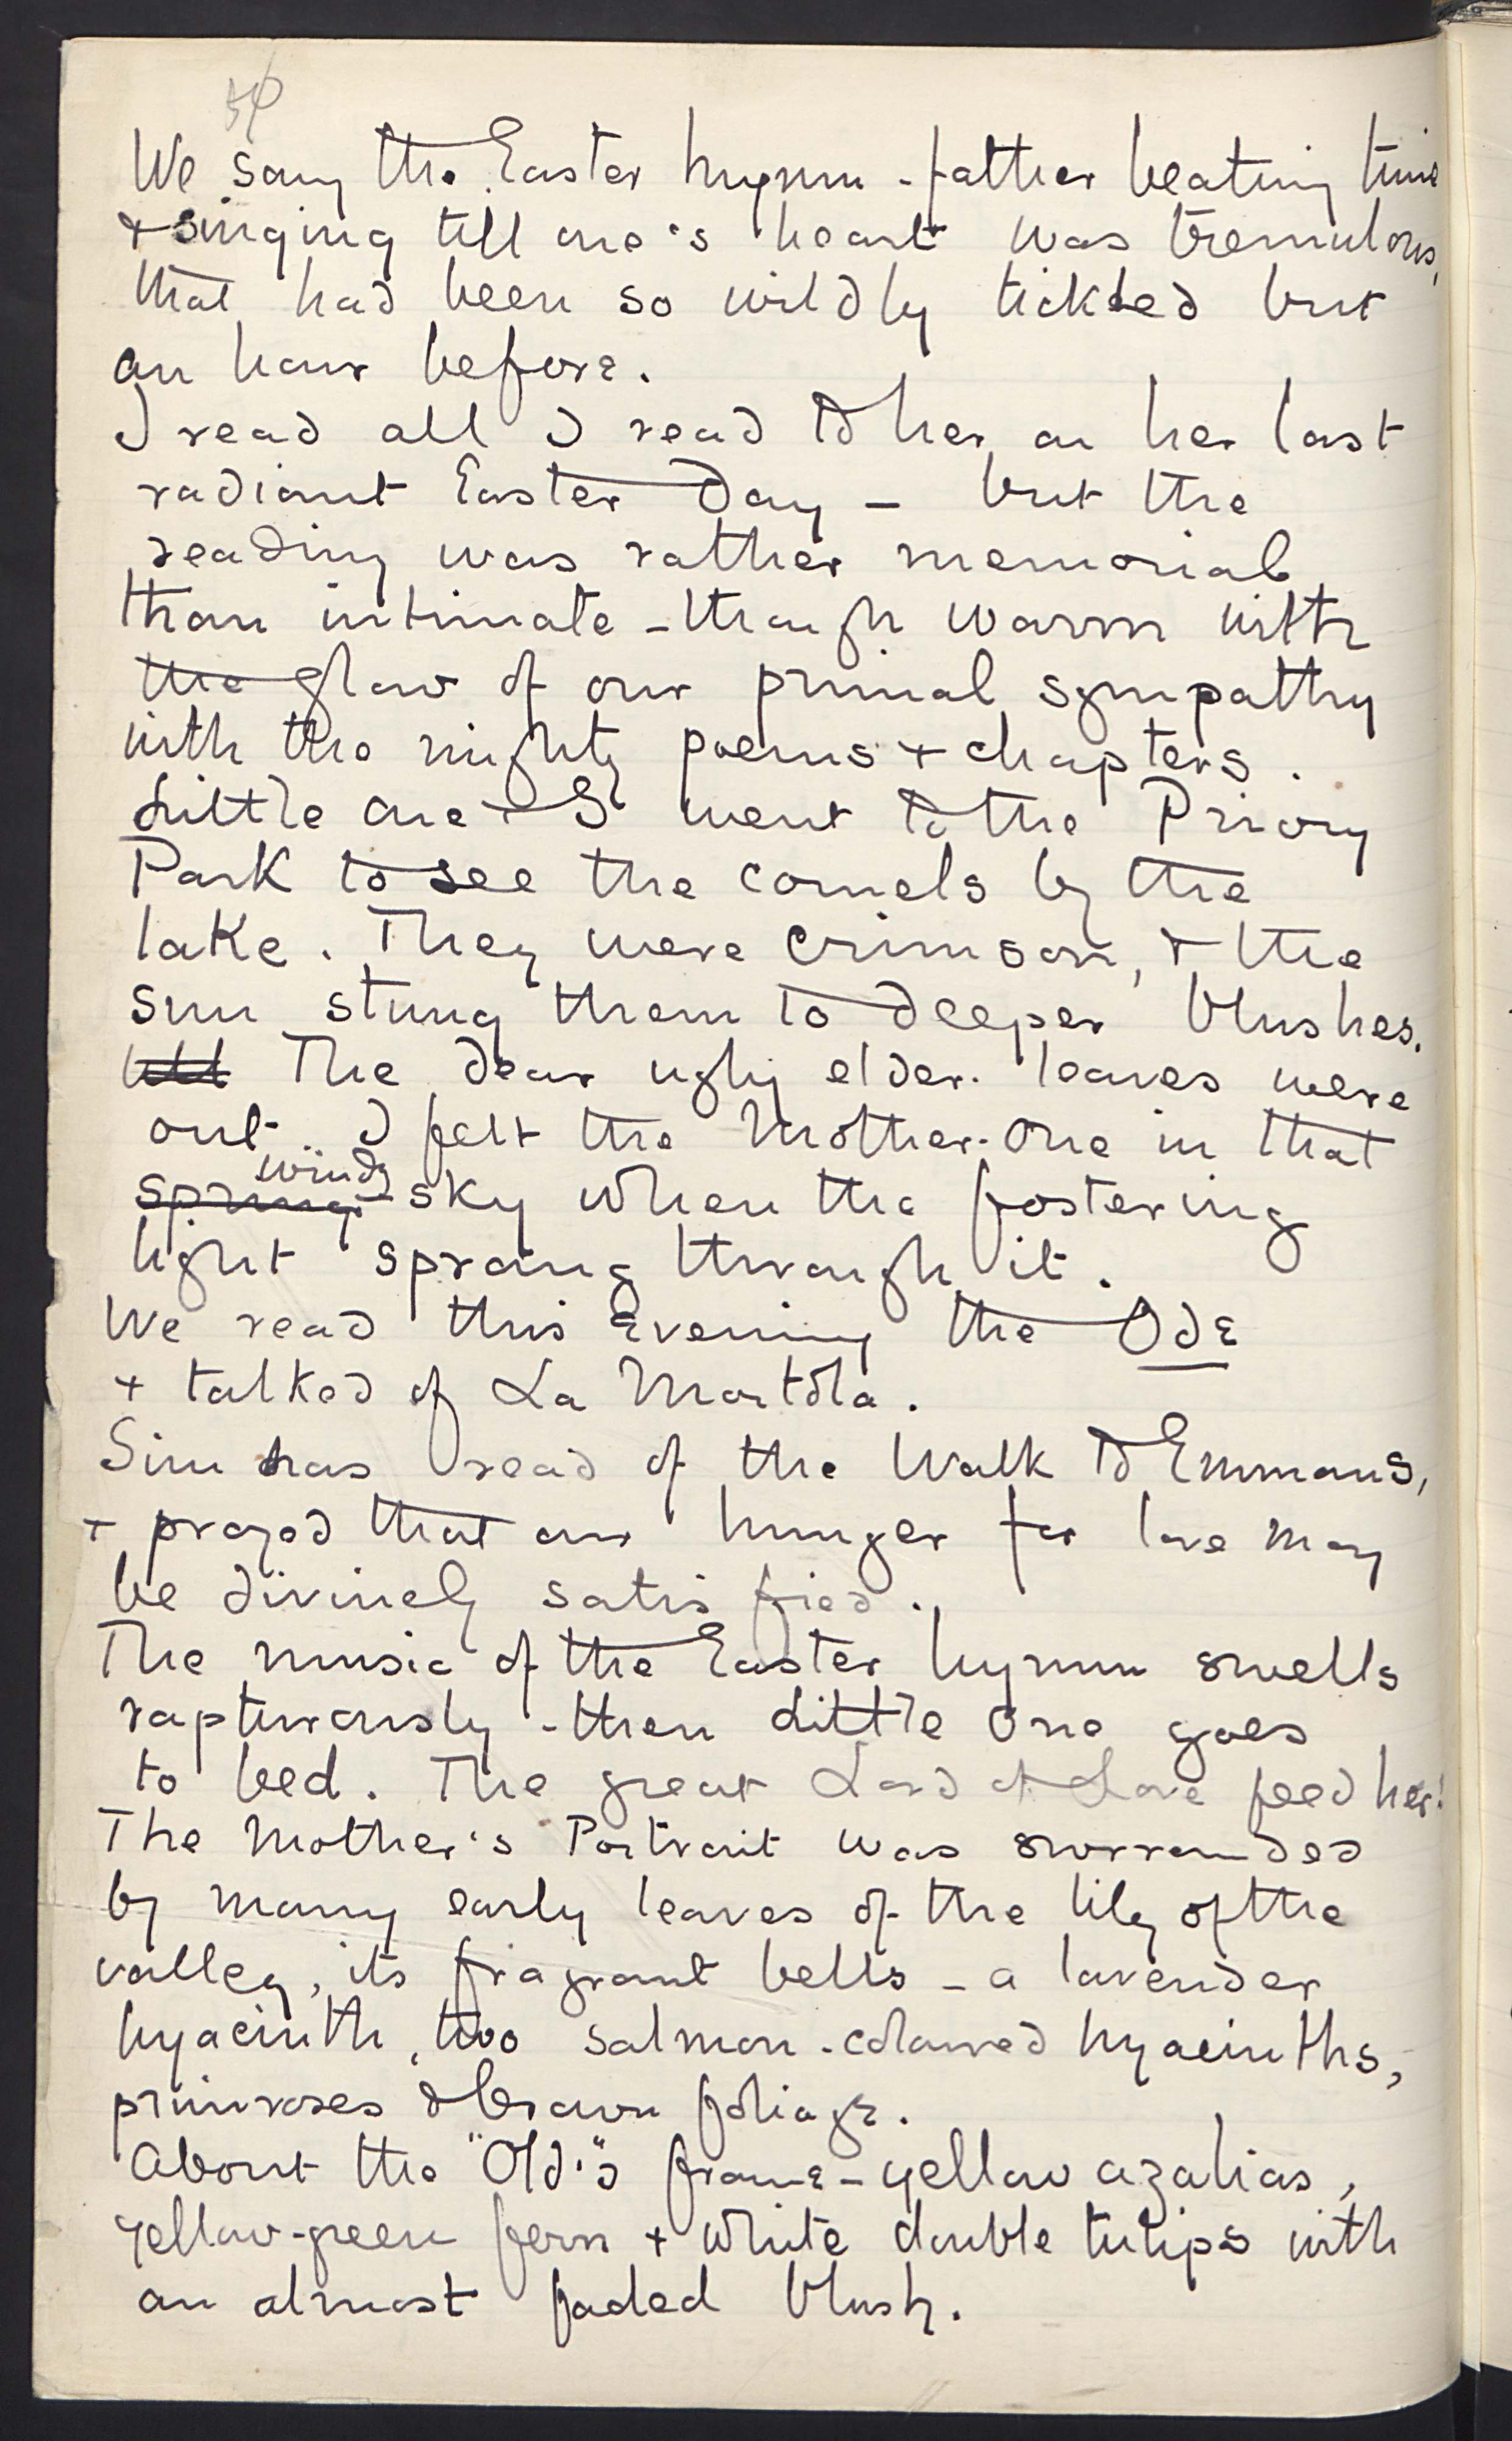 We sang the Easter hymn - father beating time
+ singing till one's heart was tremulous,
that had been so wildly tickled but
an hour before.
I read all I read to her on her last
radiant Easter Day - but the
reading was rather memorial
than intimate - though warm with
the glow of our primal sympathy
with the mighty poems + chapters.
Little one + I went to the Priory
Park to see the cornels by the
lake. They were crimson, + the
sun stung them to deeper blushes.
The dear ugly elder-leaves were
out. I felt the Mother-one in that
windy
spring sky when the fostering
light sprang through it.
We read this evening the Ode
+ talked of La Mortola.
Sim has read of the Walk to Emmaus,
+ prayed that our hunger for love may
be divinely satisfied.
The music of the Easter hymn swells
rapturously - then Little One goes
to bed. The great Lord of Love feed her!
The Mother's Portrait was surrounded
by many early leaves of the lily of the
valley, its fragrant bells - a lavender
hyacinth, two salmon-coloured hyacinths,
primroses & brown foliage.
About the "Old's" frame - yellow azalias,
yellow-green fern + white double tulips with
an almost faded blush.